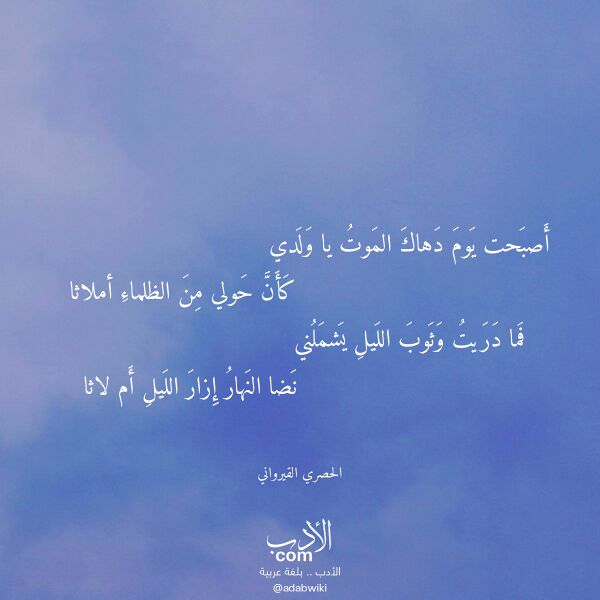 أَصبَحت يَومَ دَهاكَ المَوتُ يا وَلَدي
كَأَنَّ حَولي مِنَ الظلماءِ أملاثا
فَما دَرَيتُ وَثَوبَ اللَيلِ يَشمَلُني
نَضا النَهارُ إِزارَ اللَيلِ أَم لاثا
الحصري القيرواني
الأدب
com
الأدب .. بلغة عربية
@adabwiki